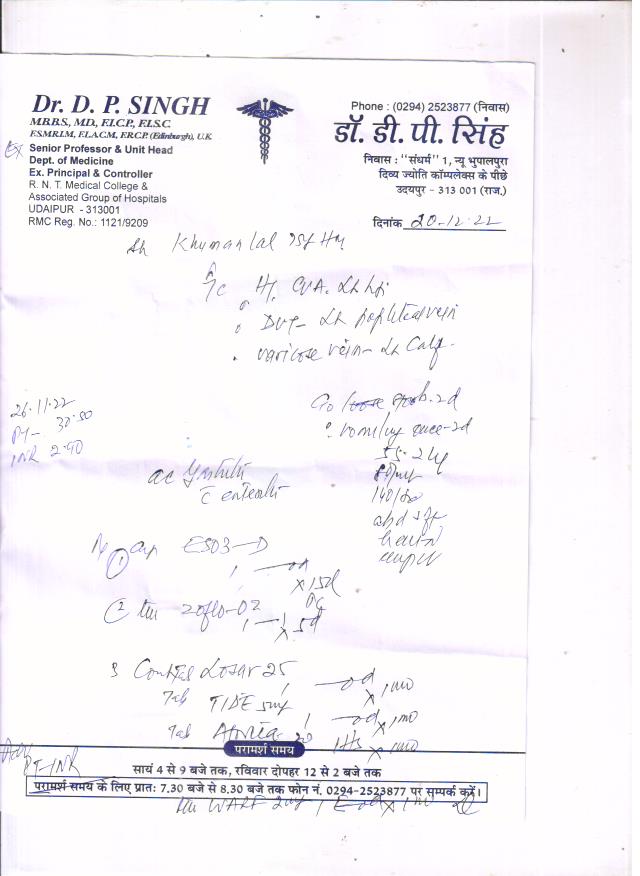 Dr. D. P. SINGH
M.B.B.S., M.D., F.I.C.P., F.I.S.C.
F.S.M.R.I.M, F.I.A.C.M, F.R.C.P. (Edinburgh), U.K
Ex Senior Professor & Unit Head
Dept. of Medicine
Ex. Principal & Controller
R. N. T. Medical College &
Associated Group of Hospitals
UDAIPUR - 313001
RMC Reg. No.: 1121/9209
Phone : (0294) 2523877 (निवास)
डॉ. डी. पी. सिंह
निवास : "संधर्म" 1, न्यू भुपालपुरा
दिव्य ज्योति कॉम्पलेक्स के पीछे
उदयपुर - 313 001 (राज.)
दिनांक 20-12-22
Sh Khuman Lal 75y
CVA. Lt
DVT - Lt popliteal vein
varicose vein - Lt Calf.
26.11.22
PT - 30.50
INR 2.90
loose stools - 2d
vomiting once - 2d
55.2 kg
140/80
abd soft
ac Gastritis
c enteritis
① Cap ESO3-D
od
x 15d
② Tab Zoflo-OZ
x 5d
3 Content Losar 25
od x 1 mo
Tab TIDE 5mg
od x 1 mo
Tab 20
1 HS x 1 mo
Adv
PT-INR
परामर्श समय
सायं 4 से 9 बजे तक, रविवार दोपहर 12 से 2 बजे तक
परामर्श समय के लिए प्रातः 7.30 बजे से 8.30 बजे तक फोन नं. 0294-2523877 पर सम्पर्क करें।
Tab WARF 2mg x 1 mo